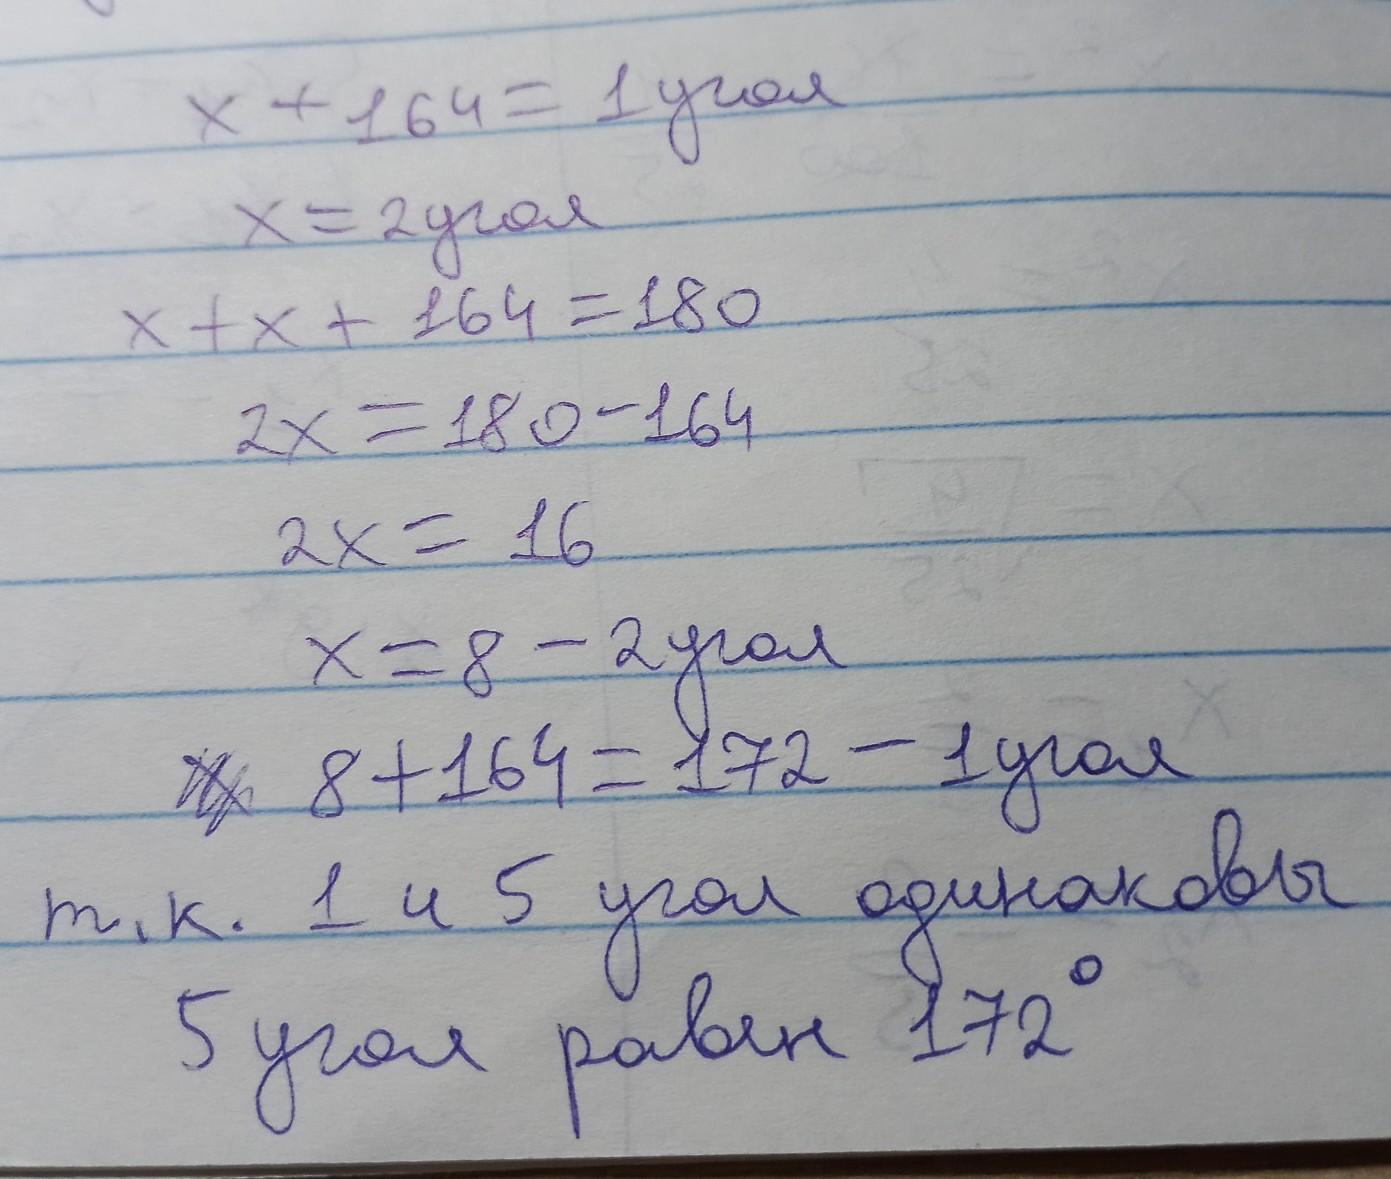 x + 164 = 1 угол
x = 2 угол
x + x + 164 = 180
2x = 180 - 164
2x = 16
x = 8 - 2 угол
8 + 164 = 172 - 1 угол
т.к. 1 и 5 угол одинаковы
5 угол равен 172°